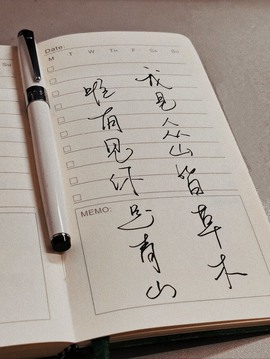 Su
Date:
M T W Th F Sa Su
我见众山皆草木
唯有见你是青山
MEMO: